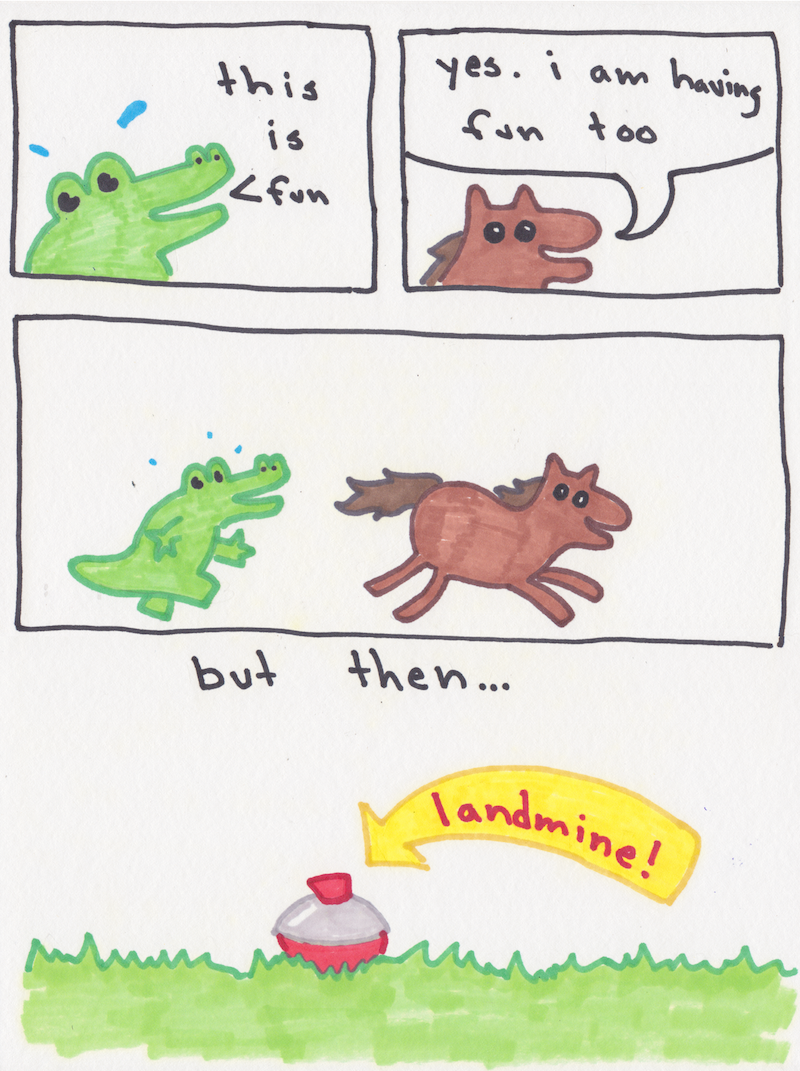 this
is
fun
yes. i am having
fun too
but then...
landmine!